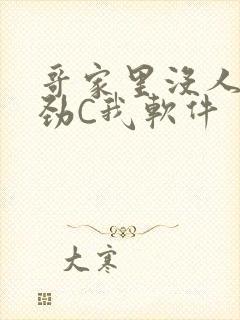 哥家里没人
劲C我软件
大寒